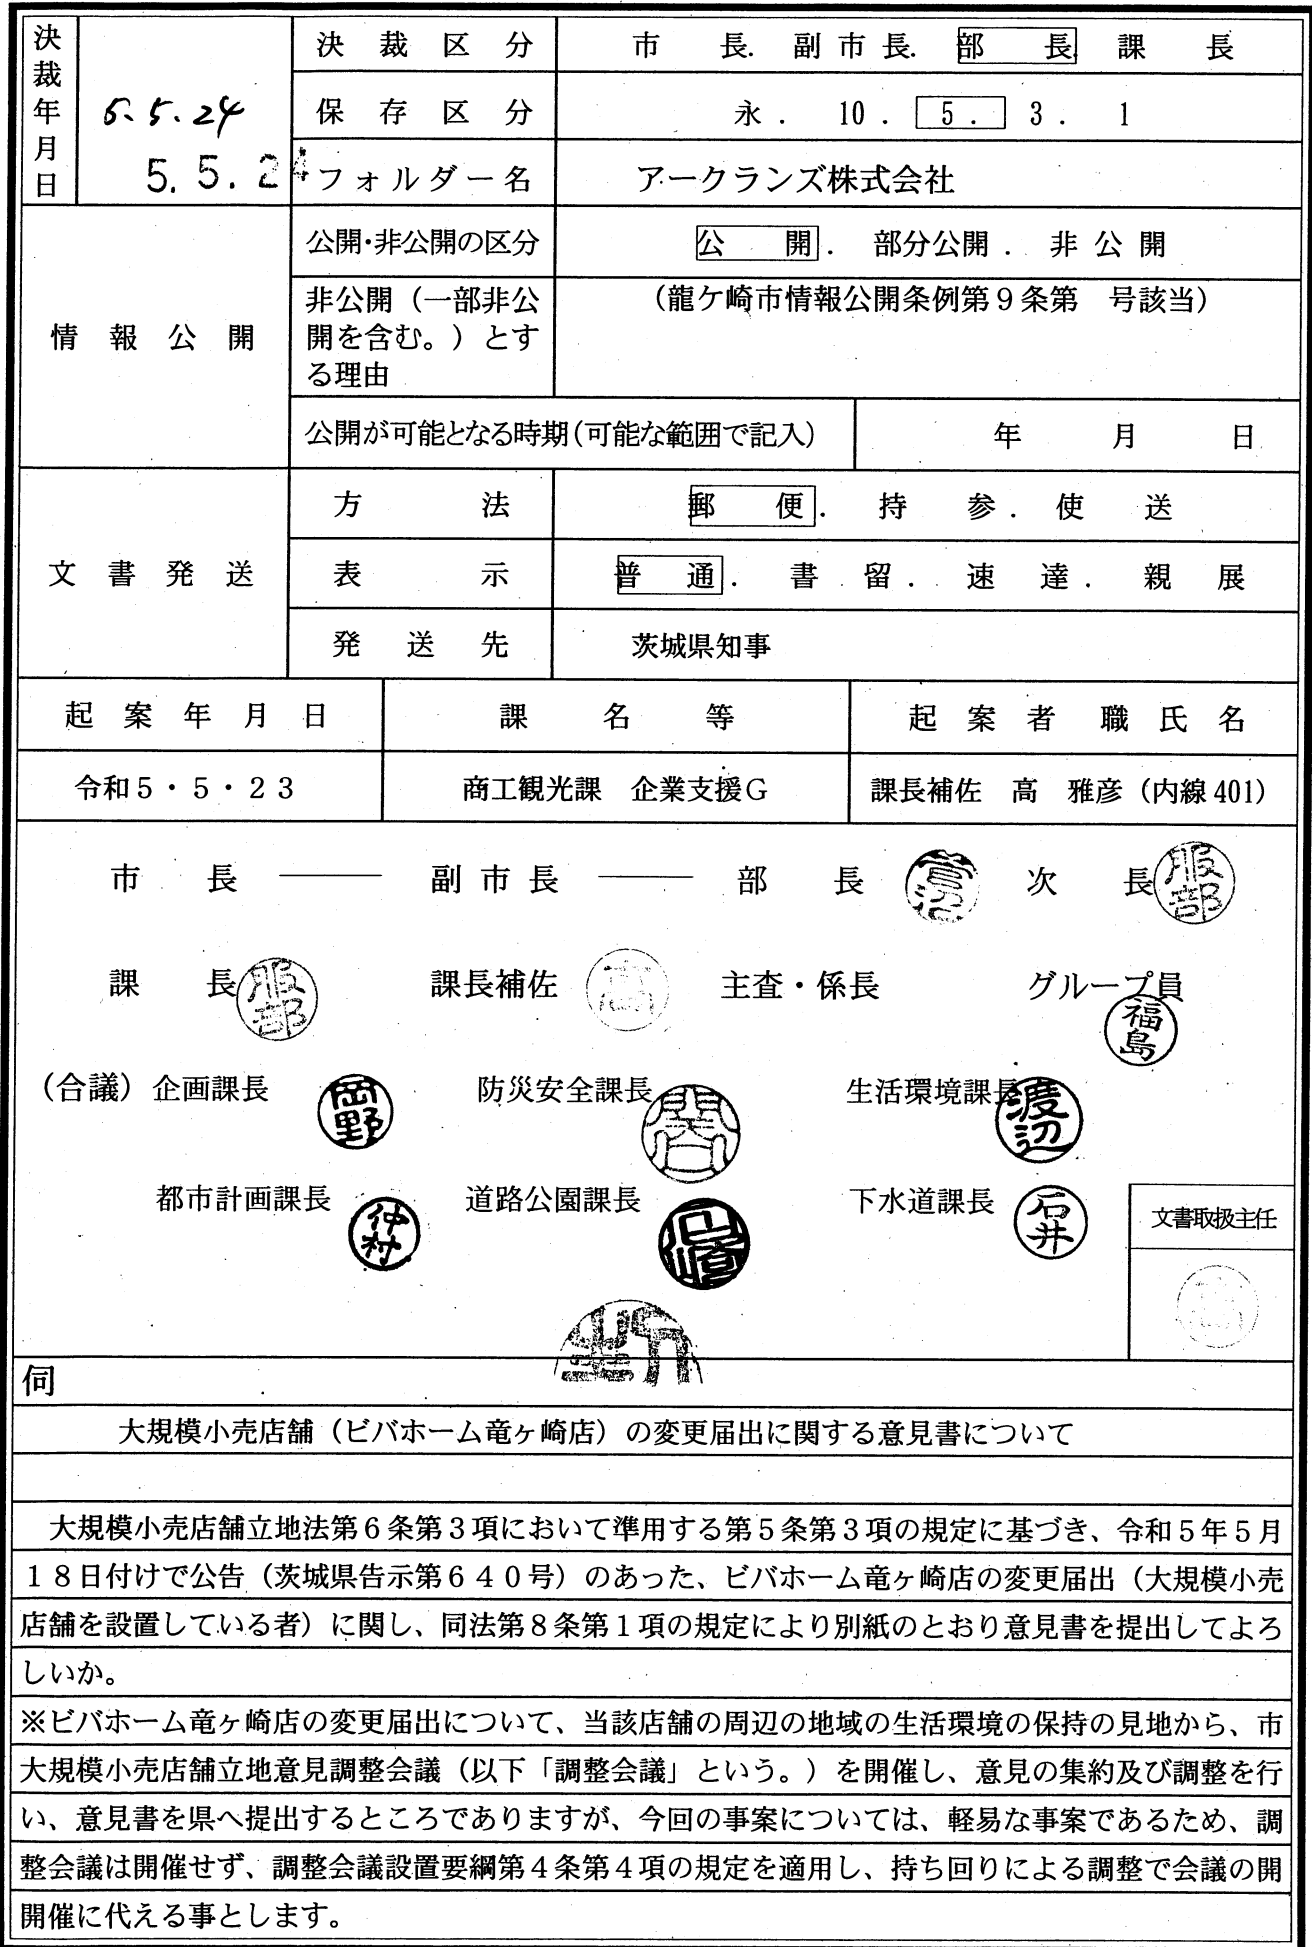 決裁年月日
5.5.24
5.5.24
決裁区分 市長.副市長.部長.課長
保存区分 永.10.5.3.1
フォルダー名 アークランズ株式会社
情報公開
公開・非公開の区分 公開.部分公開.非公開
非公開（一部非公開を含む。）とする理由
（龍ケ崎市情報公開条例第９条第　号該当）
公開が可能となる時期（可能な範囲で記入） 年 月 日
文書発送
方法 郵便.持参.使送
表示 普通.書留.速達.親展
発送先 茨城県知事
起案年月日 課名等 起案者 職氏名
令和５・５・２３ 商工観光課 企業支援Ｇ 課長補佐 高 雅彦（内線401）
市長 ―― 副市長 ―― 部長 次長 服部
課長 服部 課長補佐 高 主査・係長 グループ員 福島
（合議）企画課長 岡野 防災安全課長 関 生活環境課長 渡辺
都市計画課長 仲村 道路公園課長 山崎 下水道課長 石井
文書取扱主任
高
伺
大規模小売店舗（ビバホーム竜ヶ崎店）の変更届出に関する意見書について
大規模小売店舗立地法第６条第３項において準用する第５条第３項の規定に基づき、令和５年５月
１８日付けで公告（茨城県告示第６４０号）のあった、ビバホーム竜ヶ崎店の変更届出（大規模小売
店舗を設置している者）に関し、同法第８条第１項の規定により別紙のとおり意見書を提出してよろ
しいか。
※ビバホーム竜ヶ崎店の変更届出について、当該店舗の周辺の地域の生活環境の保持の見地から、市
大規模小売店舗立地意見調整会議（以下「調整会議」という。）を開催し、意見の集約及び調整を行
い、意見書を県へ提出するところでありますが、今回の事案については、軽易な事案であるため、調
整会議は開催せず、調整会議設置要綱第４条第４項の規定を適用し、持ち回りによる調整で会議の開
開催に代える事とします。